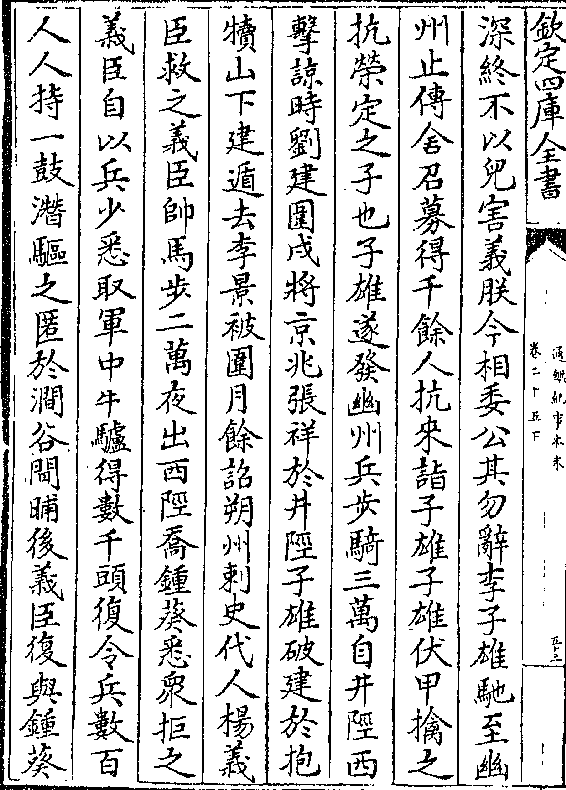 欽定四庫全書
通鑑紀事本末
卷二十五下
五十三
深終不以兒害義朕今相委公其勿辭李子雄馳至幽
州止傳舍召募得千餘人抗来詣子雄子雄伏甲擒之
抗榮定之子也子雄遂發幽州兵步騎三萬自井陘西
擊諒時劉建圍戍將京兆張祥於井陘子雄破建於抱
犢山下建遁去李景被圍月餘詔朔州刺史代人楊義
臣救之義臣帥馬步二萬夜出西陘喬鍾葵悉衆拒之
義臣自以兵少悉取軍中牛驢得數千頭復令兵數百
人人持一鼓潛驅之匿於澗谷間晡後義臣復與鍾葵